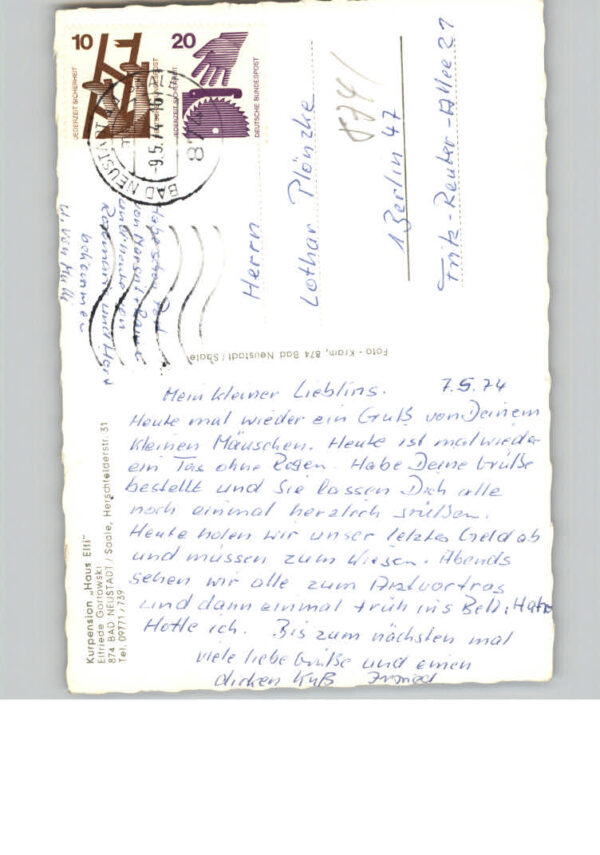 Mein kleiner Liebling. 7.5.74
Heute mal wieder ein Gruß von Deinem
kleinen Mäuschen. Heute ist mal wieder
ein Tag ohne Regen. Habe Deine Grüße
bestellt und Sie lassen Dich alle
noch einmal herzlich grüßen.
Heute holen wir unser letztes Geld ab
und müssen zum Wiegen. Abends
gehen wir alle zum Arztvortrag
und dann einmal früh ins Bett.
Hoffe ich. Bis zum nächsten mal
viele liebe Grüße und einen
dicken Kuß
Herrn
Lothar Plönzke
1 Berlin 47
Fritz-Reuter-Allee 21
874/
Habe schon Post
von
und Heute von
Rosemarie und
bekommen
Foto - Kram, 874 Bad Neustadt/Saale
Kurpension „Haus Elfi"
Elfriede Gartowski
874 BAD NEUSTADT/Saale, Herschfelderstr. 31
Tel. 09771/739
10
JEDERZEIT SICHERHEIT
20
JEDERZEIT SICHERHEIT
DEUTSCHE BUNDESPOST
BAD NEUSTADT
-9.5.74-16